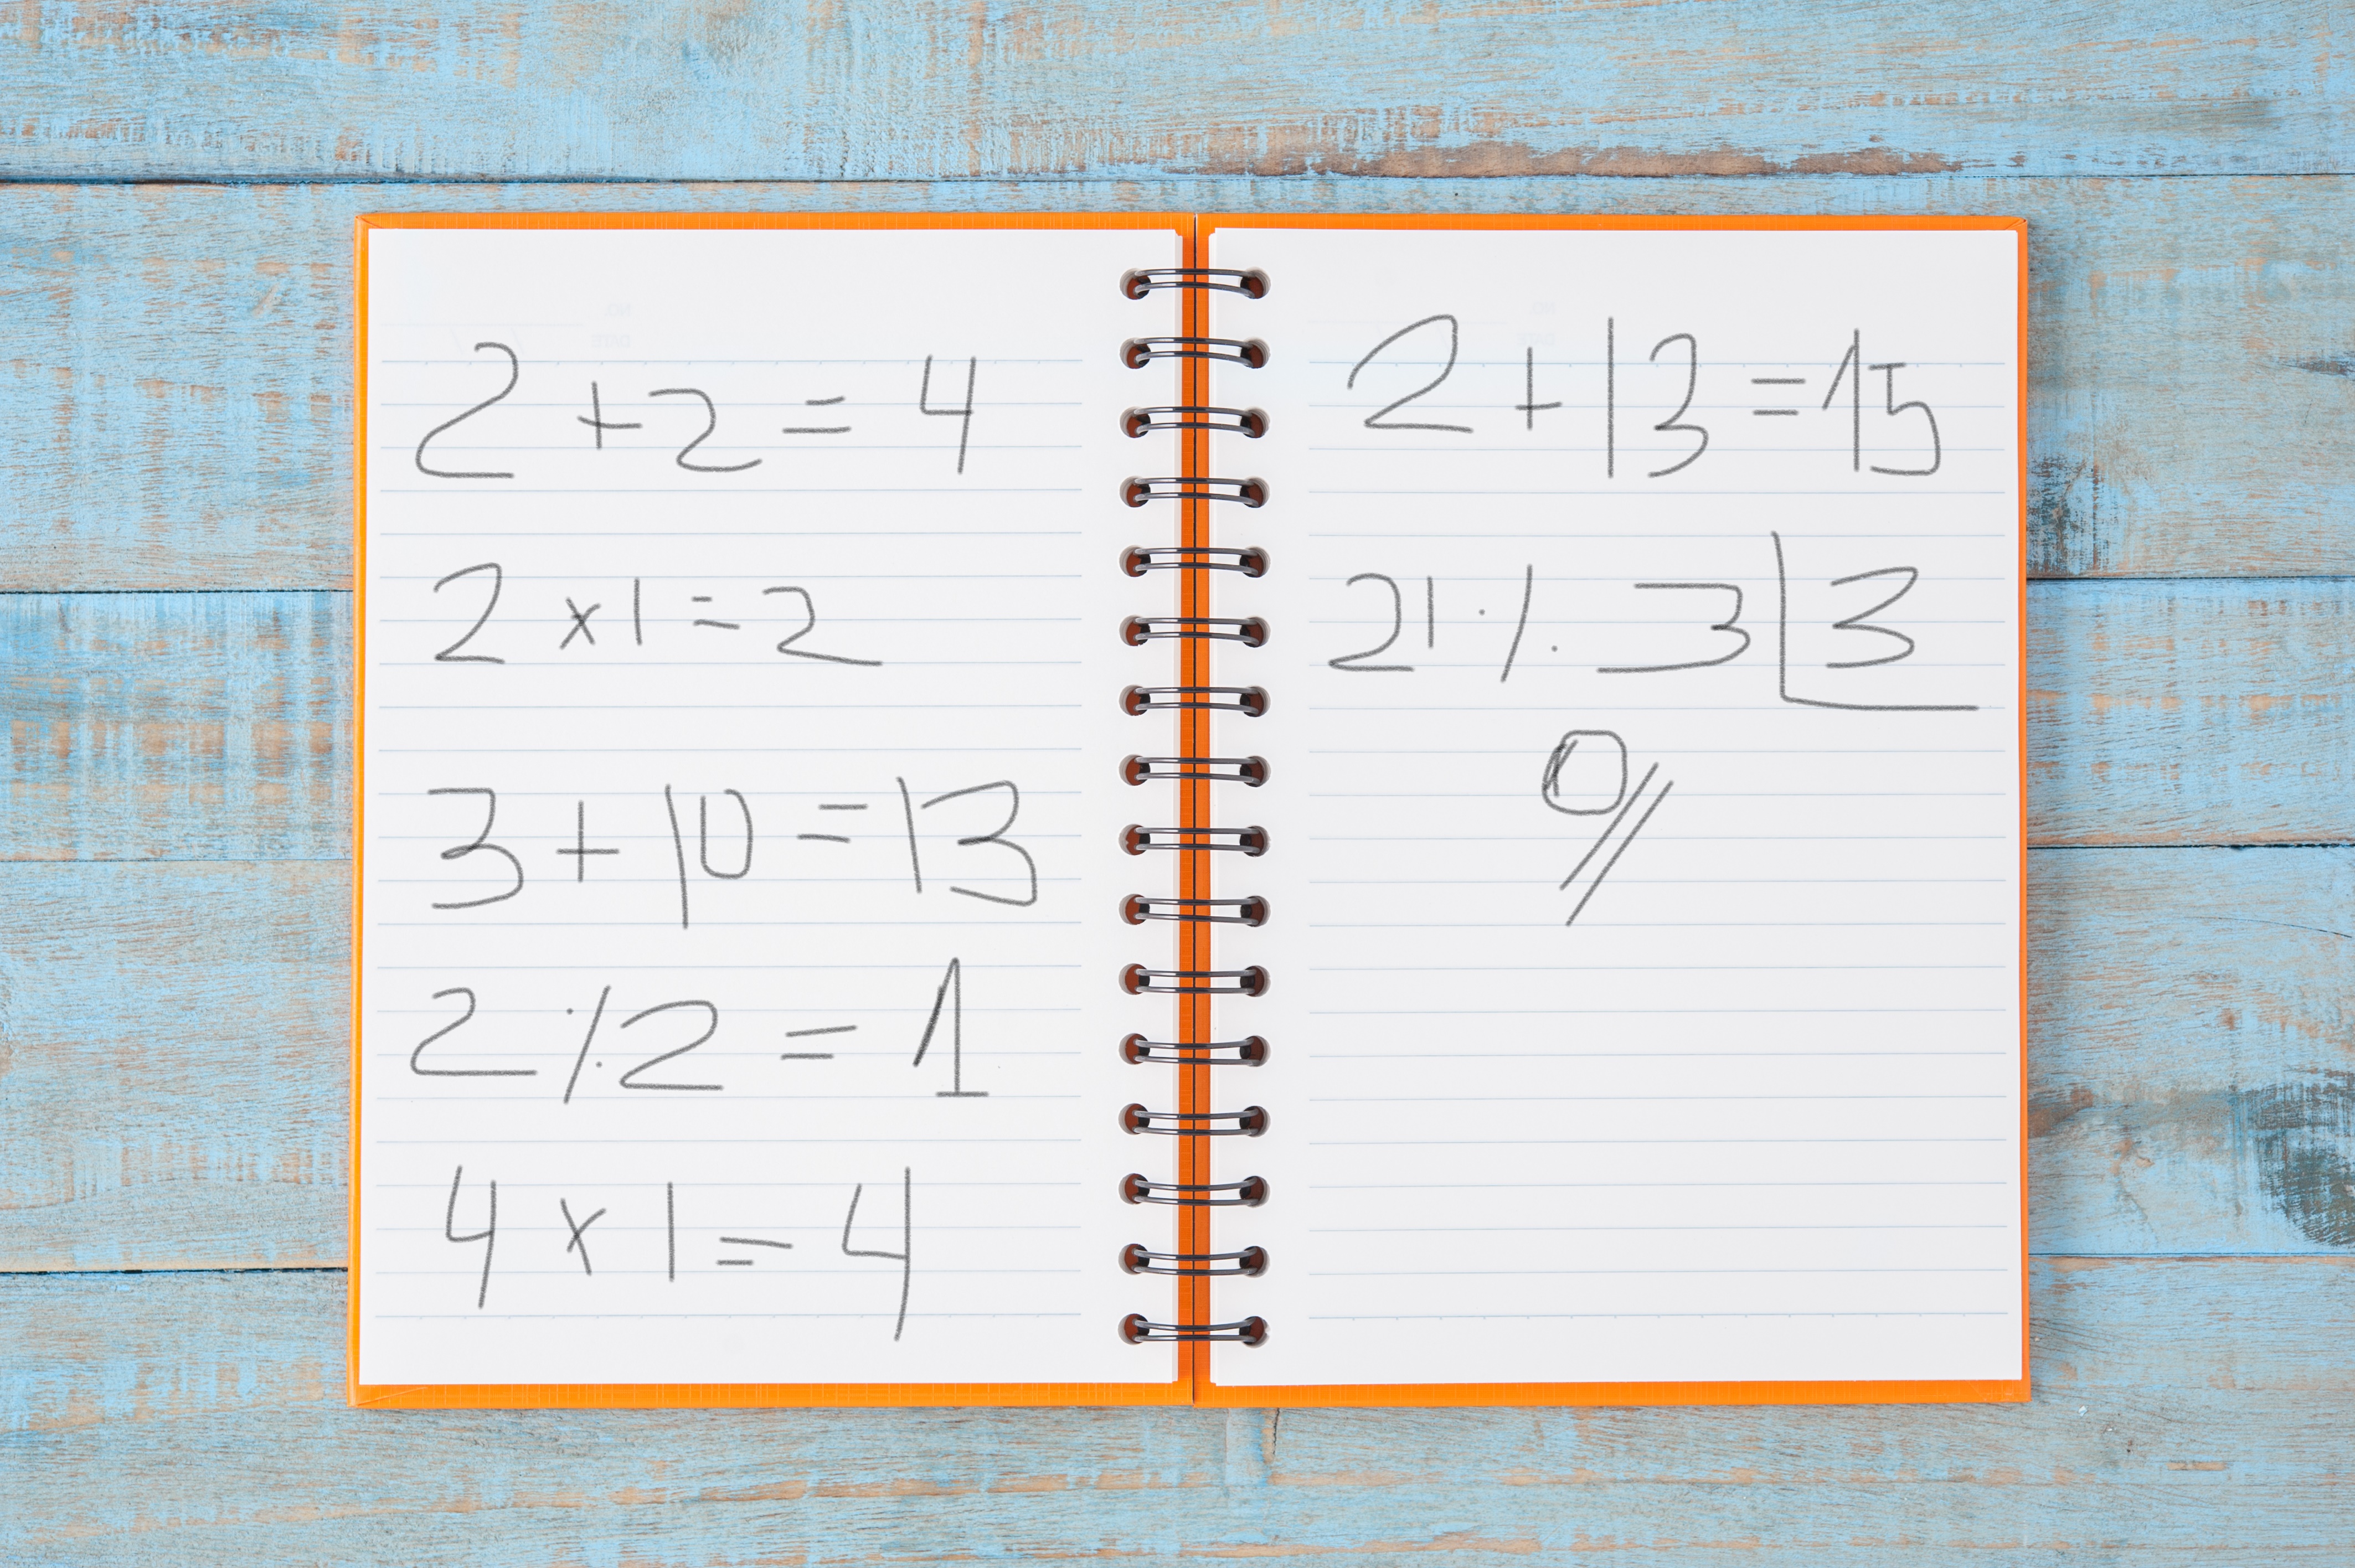 2+2=4
2x1=2
3+10=13
2٪2=1
4x1=4
2+13=15
21٪3|3
0//